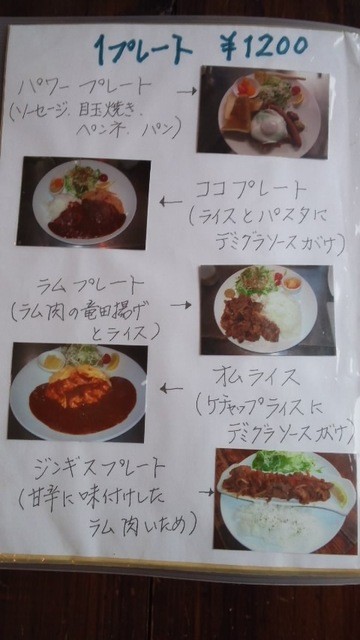 1プレート ￥1200
パワープレート
(ソーセージ、目玉焼き、
ペンネ、パン)
ココプレート
(ライスとパスタに
デミグラソースがけ)
ラムプレート
(ラム肉の竜田揚げ
とライス)
オムライス
(ケチャップライスに
デミグラソースがけ)
ジンギスプレート
(甘辛に味付けした
ラム肉いため)